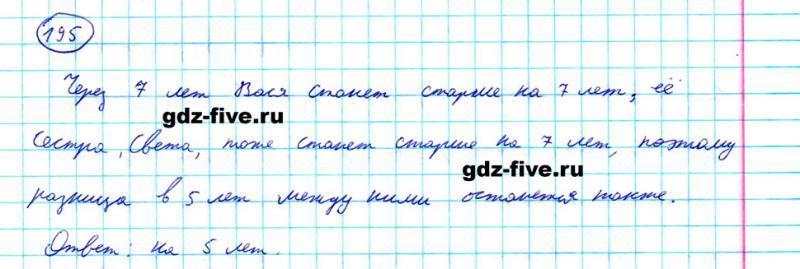 195
Через 7 лет Вася станет старше на 7 лет, её
gdz-five.ru
сестра, Света, тоже станет старше на 7 лет, поэтому
gdz-five.ru
разница в 5 лет между ними останется также.
Ответ: на 5 лет.